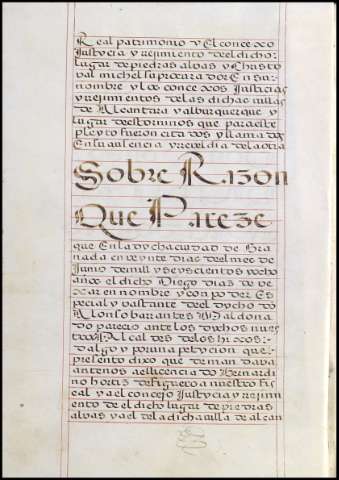 Real patrimonio y El conçexo
Justycia y rejimiento del dicho
lugar de piedras aluas y Christo
val michel su procurador En su
nombre y los conçexos Justicias
y rejimientos de las dichas uillas
de Alcantara y alburquerque y
lugar destorninos que para este
pleyto fueron citados y llamados
En su ausencia y rreveldia de la otra
Sobre Razon
Que Pareze
que En la dycha ciudad de Gra
nada en veynte dias del mes de
Junio de mill y seyscientos y ocho
anos el dicho Diego dias de ve
xar en nombre y con poder Es
pecial y bastante del dycho do
Alonso barrantes Maldona
do parecio ante los dychos nues
tros Alcaldes de los hixos:-
dalgo y por una petycion que
presento dixo que demandaba
ante nos a el licenciado Bernardi
no hortis de figueroa nuestro fis
cal y a el concejo Justycia y rrejimi
ento de el dicho lugar de piedras
aluas y a el de la dicha uilla de alcan